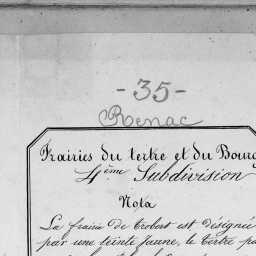 - 35 -
Renac
Frairies du tertre et du Bourg
4ème Subdivision
Nota
La frairie de trobert est désignée
par une teinte Jaune, le tertre pa